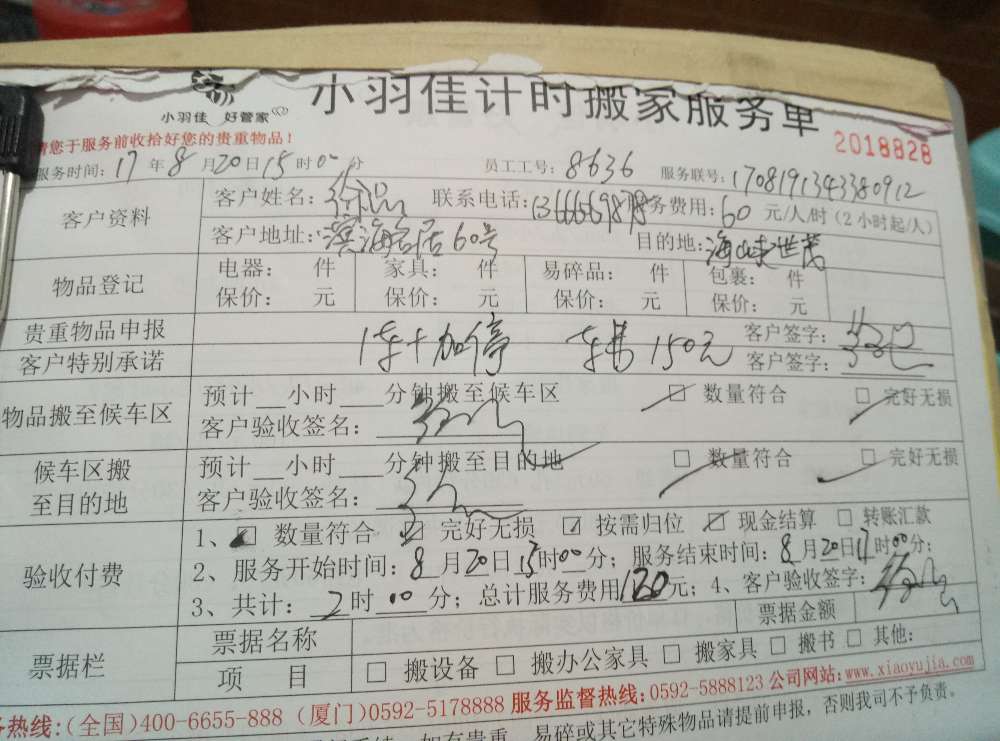 小羽佳 好管家
小羽佳计时搬家服务单
请您于服务前收拾好您的贵重物品！
2018828
服务时间：17年8月20日15时00分 员工工号：8636 服务联号：1708191343380912
客户资料
客户姓名： 联系电话：13666569898 服务费用：60元/人/时（2小时起/人）
客户地址：滨海名居60号 目的地：海峡世茂
物品登记
电器： 件 家具： 件 易碎品： 件 包裹： 件
保价： 元 保价： 元 保价： 元 保价： 元
贵重物品申报 客户签字：
1车+加停 车费150元
客户特别承诺 客户签字：
物品搬至候车区
预计__小时___分钟搬至候车区 □ 数量符合 □ 完好无损
客户验收签名：
候车区搬至目的地
预计__小时___分钟搬至目的地 □ 数量符合 □ 完好无损
客户验收签名：
验收付费
1、☑ 数量符合 ☑ 完好无损 ☑ 按需归位 ☑ 现金结算 □ 转账汇款
2、服务开始时间：8月20日15时00分；服务结束时间：8月20日17时00分；
3、共计：2时00分；总计服务费用120元；4、客户验收签字：
票据栏
票据名称 票据金额
项 目 □ 搬设备 □ 搬办公家具 □ 搬家具 □ 搬书 □ 其他：
务热线：(全国)400-6655-888 (厦门)0592-5178888 服务监督热线：0592-5888123 公司网站：www.xiaoyujia.com
如有贵重、易碎或其它特殊物品请提前申报，否则我司不予负责。